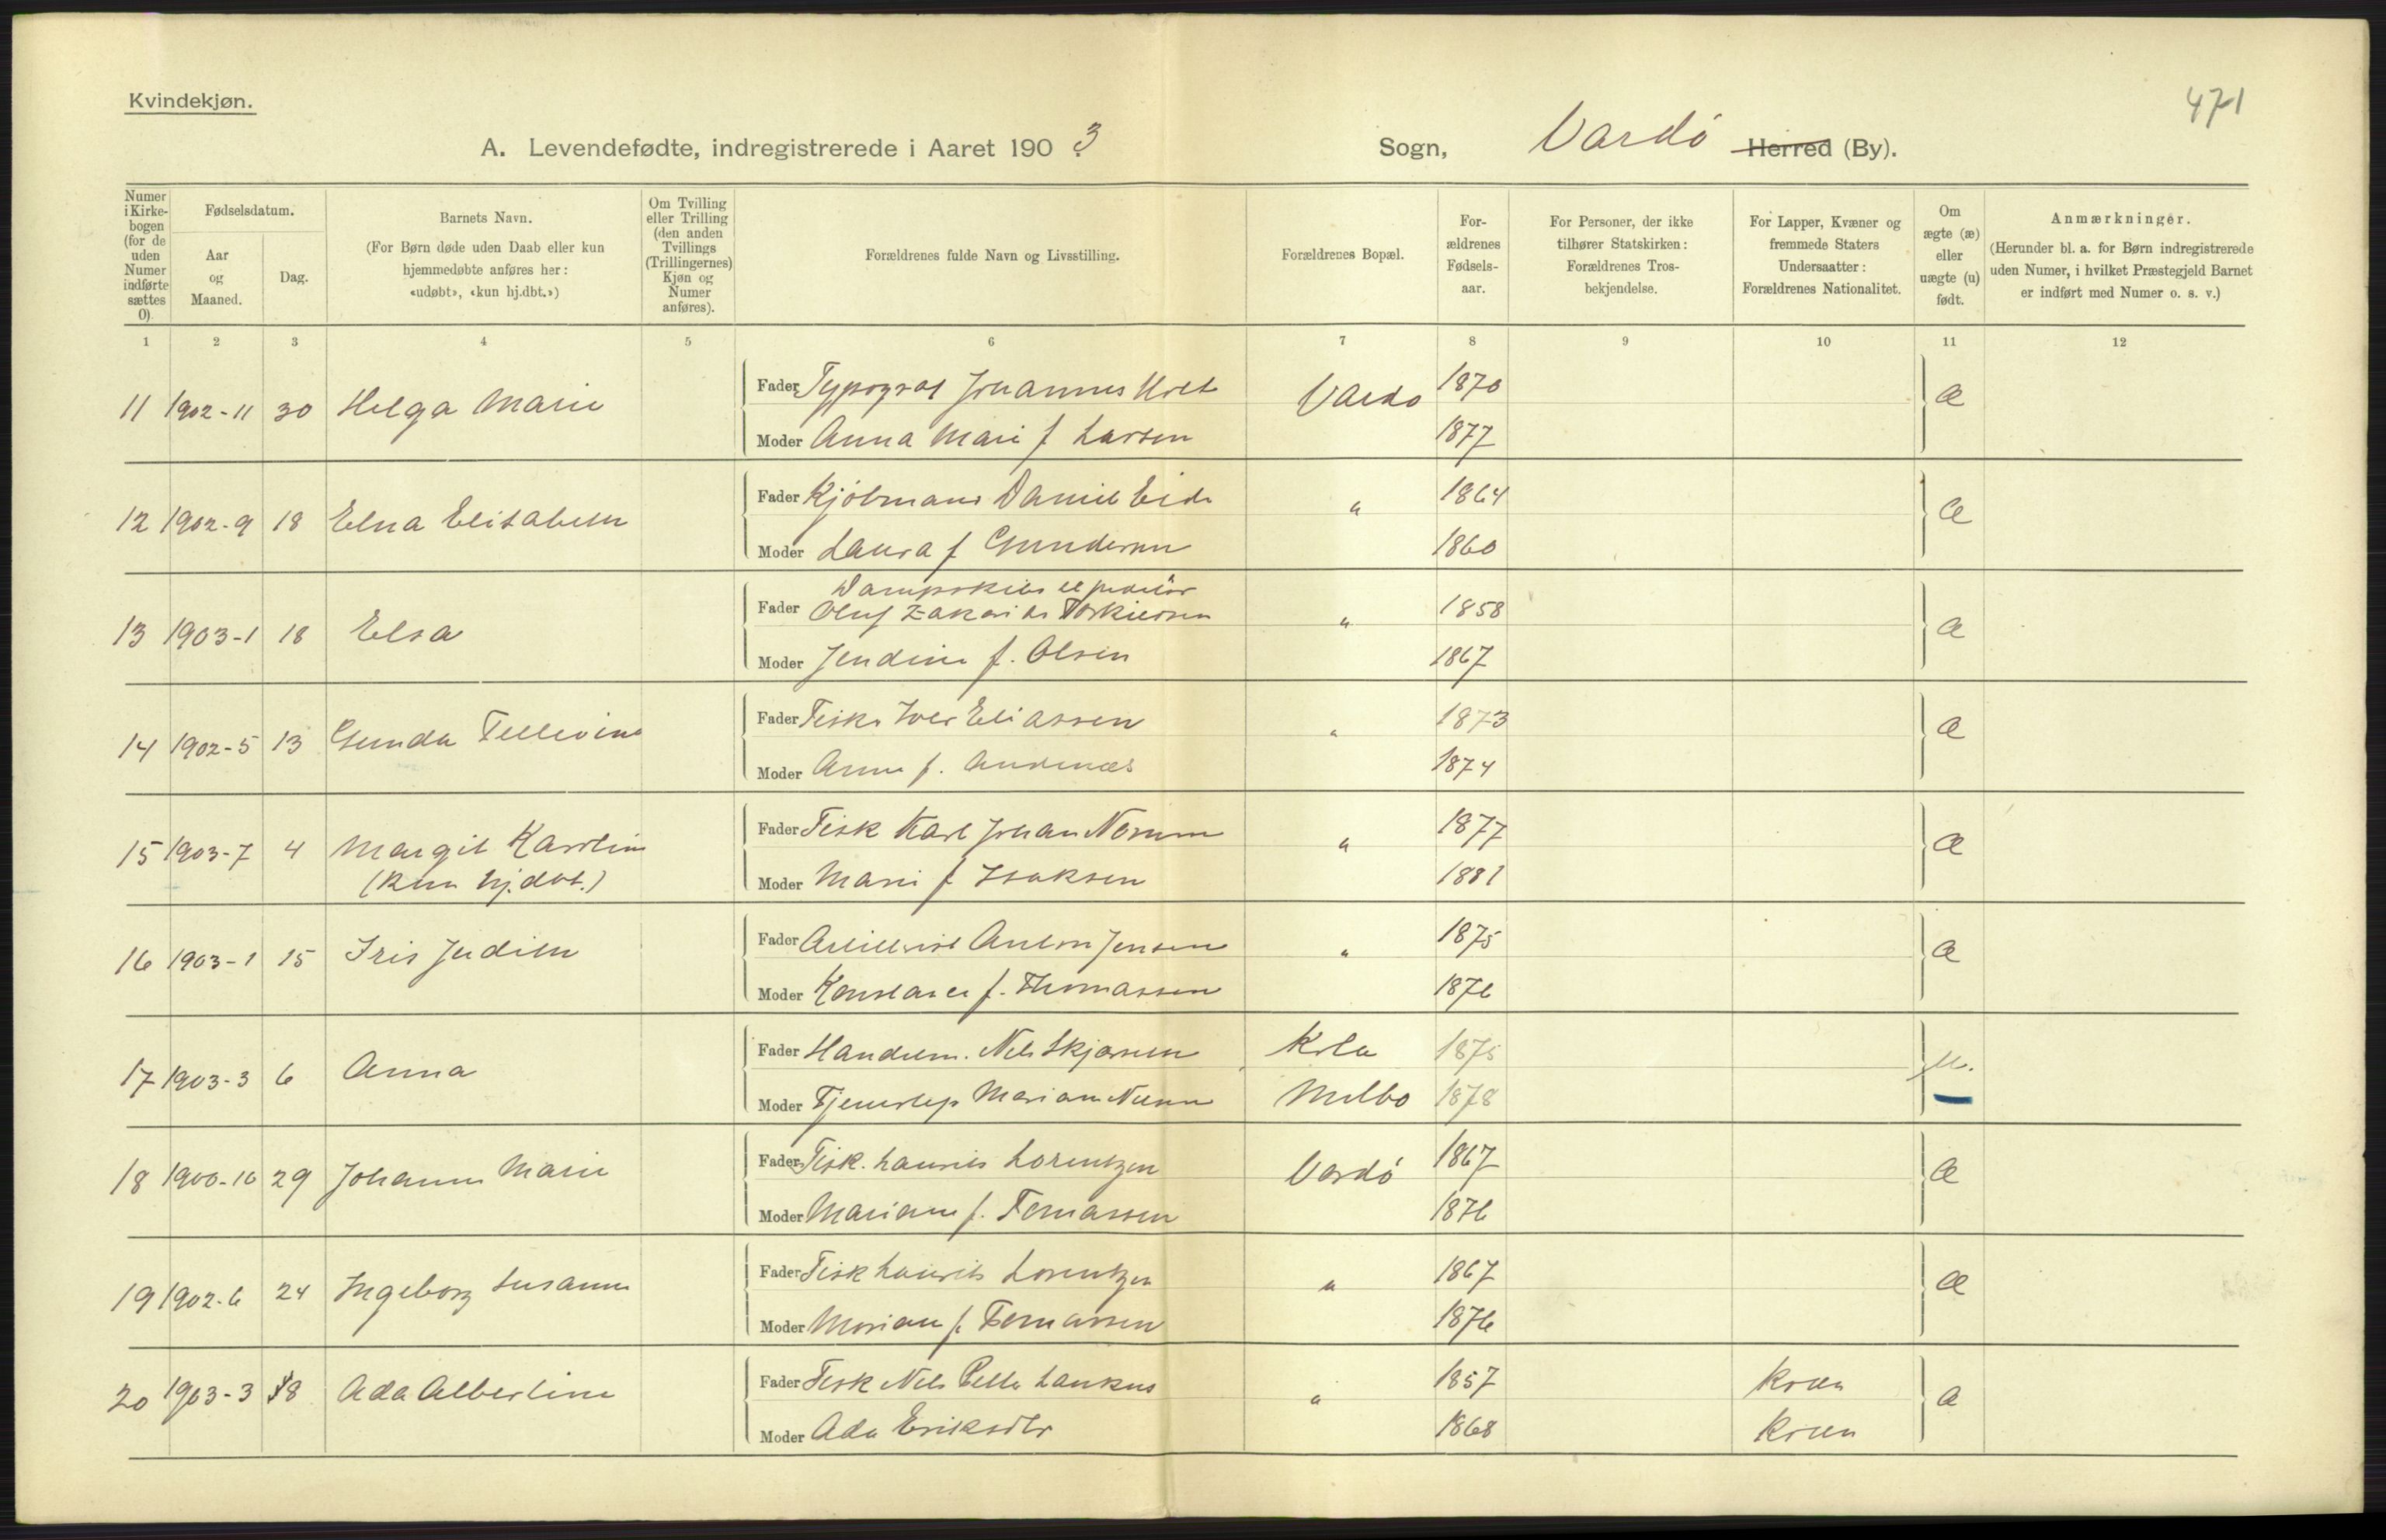 Kvindekjøn.
471
A. Levendefødte, indregistrerede i Aaret 1903. Sogn, Vardö Herred (By).
Numer i Kirkebogen (for de uden Numer indførte sættes 0)
Fødselsdatum.
Aar og Maaned.
Dag.
Barnets Navn.
(For Børn døde uden Daab eller kun hjemmedøbte anføres her: «udøbt», «kun hj.dbt.»)
Om Tvilling eller Trilling (den anden Tvillings (Trillingernes) Kjøn og Numer anføres).
Forældrenes fulde Navn og Livsstilling.
Forældrenes Bopæl.
Forældrenes Fødselsaar.
For Personer, der ikke tilhører Statskirken: Forældrenes Trosbekjendelse.
For Lapper, Kvæner og fremmede Staters Undersaatter: Forældrenes Nationalitet.
Om ægte (æ) eller uægte (u) født.
Anmærkninger.
(Herunder bl. a. for Børn indregistrerede uden Numer, i hvilket Præstegjeld Barnet er indført med Numer o. s. v.)
1 2 3 4 5 6 7 8 9 10 11 12
11 1902-11 30 Helga Marie Fader Typograf Johannes Holt Vardö 1870 æ
Moder Anna Marie f Larsen 1877
12 1902-9 18 Elna Elisabeth Fader Kjöbmand Daniel Eide " 1864 æ
Moder Laura f Gundersen 1860
Dampskibsexpeditör
13 1903-1 18 Elsa Fader Oluf Zakarias Torkildsen " 1858 æ
Moder Jendine f. Olsen 1867
14 1902-5 13 Gunda Fader Fisker Iver Eliassen " 1873 æ
Moder Anna f. Andenæs 1874
15 1903-7 4 Margit Karoline Fader Fisk Karl Johan " 1877 æ
(kun hj.dbt.) Moder Marie f Isaksen 1881
16 1903-1 15 Iris Judith Fader Anton Jensen " 1875 æ
Moder Konstance f. Thomassen 1876
17 1903-3 6 Anna Fader Handelsm. Nils Kola 1875 u.
Moder Tjenestep Mariane Nilsen Melbo 1878
18 1900-10 29 Johanne Marie Fader Fisk. Laurits Lorentzen Vardö 1867 æ
Moder Mariane f. Tomassen 1876
19 1902-6 24 Ingeborg Susanne Fader Fisk Laurits Lorentzen " 1867 æ
Moder Mariane f. Tomassen 1876
20 1903-3 18 Ada Albertine Fader Fisk Nils Petter Lankus " 1857 Kvæn æ
Moder Ada Eriksdtr 1868 Kvæn